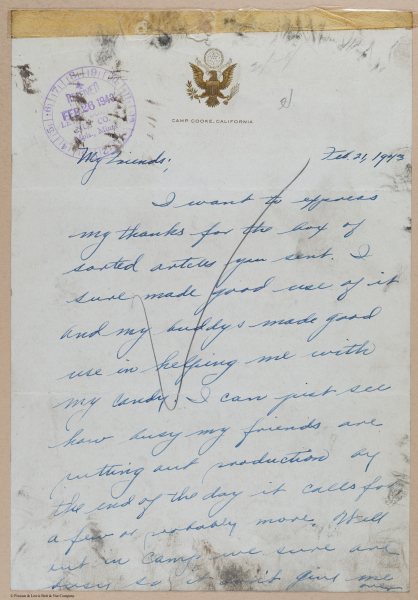 RECEIVED
FEB 26 1943
CAMP COOKE, CALIFORNIA
My friends; Feb. 21, 1943
I want to express
my thanks for the box of
sorted articles you sent. I
sure made good use of it
and my buddys made good
use in helping me with
my candy. I can just see
how busy my friends are
putting out production by
the end of the day it calls for
a few or probably more. Well
out in camp we sure are
busy so it don't give me
over
© Pittman & Lewis Bolt & Nut Company